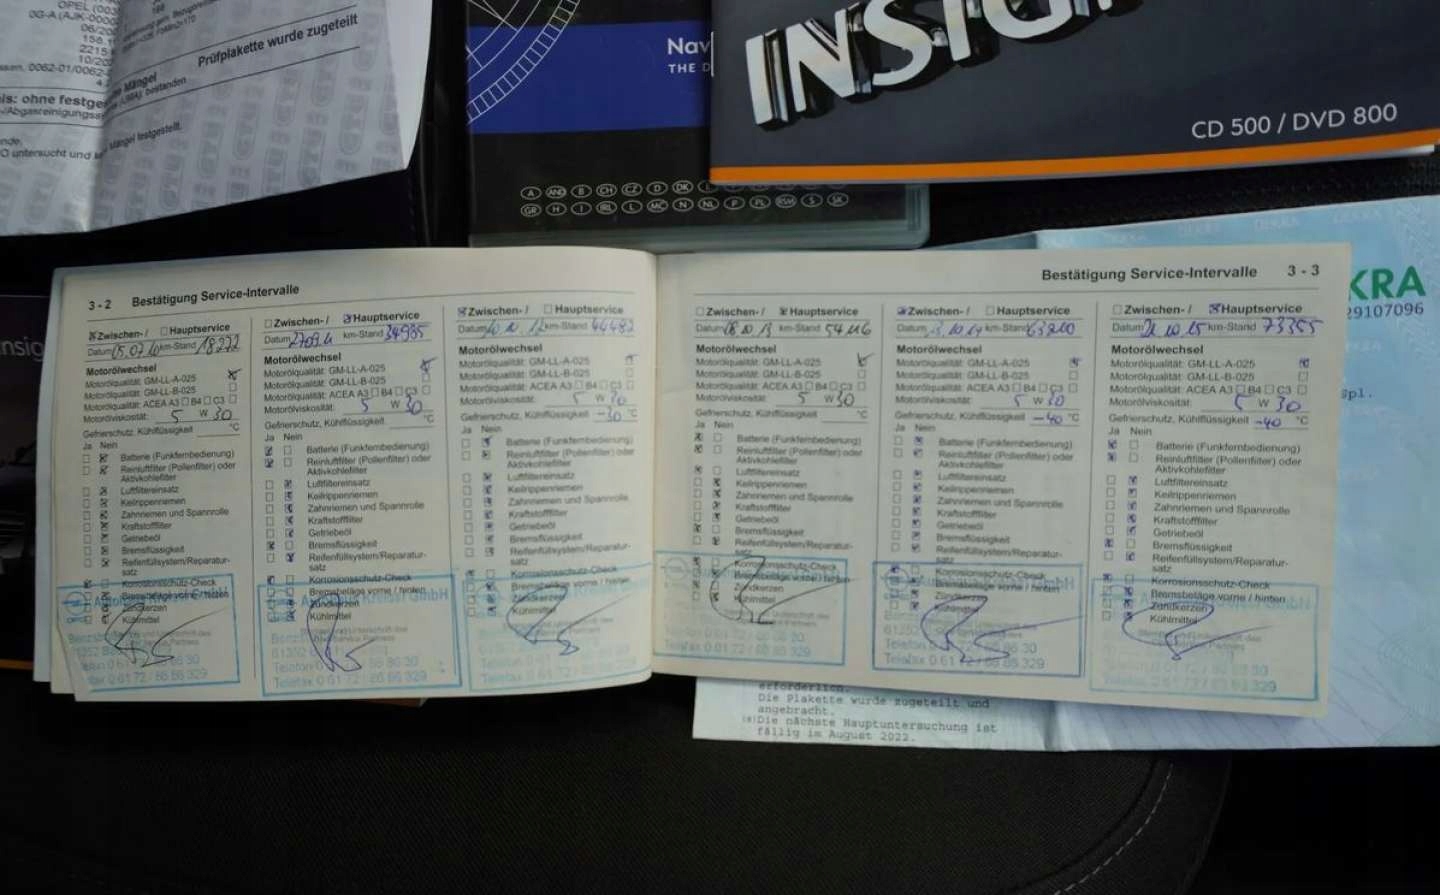 OPEL (003
0G-A (AJK-0000
06/20
158.1
2215
10/20
ssen. 0062-01/0062-
Prüfplakette wurde zugeteilt
Mängel
bestanden
is: ohne festge
-/Abgasreinigungssy
nde.
O untersucht und k
Mängel festgestellt.
GTÜ
Nav
THE D
A AND B CH CZ D DK E
GR H I IRL L MC N NL P PL RSM S SK
INSIG
CD 500 / DVD 800
KRA
29107096
Spl.
nsig
3 - 2 Bestätigung Service-Intervalle
Zwischen- / Hauptservice
Datum 15.07.10 km-Stand 18272
Motorölwechsel
Motorölqualität: GM-LL-A-025
Motorölqualität: GM-LL-B-025
Motorölqualität: ACEA A3 B4 C3
Motorölviskosität: 5 W 30
Gefrierschutz, Kühlflüssigkeit °C
Ja Nein
Batterie (Funkfernbedienung)
Reinluftfilter (Pollenfilter) oder
Aktivkohlefilter
Luftfiltereinsatz
Keilrippenriemen
Zahnriemen und Spannrolle
Kraftstofffilter
Getriebeöl
Bremsflüssigkeit
Reifenfüllsystem/Reparatur-
satz
Korrosionsschutz-Check
Bremsbeläge vorne / hinten
Zündkerzen
Kühlmittel
Telefax 0 61 72 / 86 86 329
Zwischen- / Hauptservice
Datum 27.09.11 km-Stand 34985
Motorölwechsel
Motorölqualität: GM-LL-A-025
Motorölqualität: GM-LL-B-025
Motorölqualität: ACEA A3 B4 C3
Motorölviskosität: 5 W 30
Gefrierschutz, Kühlflüssigkeit °C
Ja Nein
Batterie (Funkfernbedienung)
Reinluftfilter (Pollenfilter) oder
Aktivkohlefilter
Luftfiltereinsatz
Keilrippenriemen
Zahnriemen und Spannrolle
Kraftstofffilter
Getriebeöl
Bremsflüssigkeit
Reifenfüllsystem/Reparatur-
satz
Korrosionsschutz-Check
Bremsbeläge vorne / hinten
Zündkerzen
Kühlmittel
Telefax 0 61 72 / 86 86 329
Zwischen- / Hauptservice
Datum 10.10.12 km-Stand 44482
Motorölwechsel
Motorölqualität: GM-LL-A-025
Motorölqualität: GM-LL-B-025
Motorölqualität: ACEA A3 B4 C3
Motorölviskosität: 5 W 30
Gefrierschutz, Kühlflüssigkeit -30 °C
Ja Nein
Batterie (Funkfernbedienung)
Reinluftfilter (Pollenfilter) oder
Aktivkohlefilter
Luftfiltereinsatz
Keilrippenriemen
Zahnriemen und Spannrolle
Kraftstofffilter
Getriebeöl
Bremsflüssigkeit
Reifenfüllsystem/Reparatur-
satz
Korrosionsschutz-Check
Bremsbeläge vorne / hinten
Zündkerzen
Kühlmittel
Telefax 0 61 72 / 86 86 329
Bestätigung Service-Intervalle 3 - 3
Zwischen- / Hauptservice
Datum 18.10.13 km-Stand 54116
Motorölwechsel
Motorölqualität: GM-LL-A-025
Motorölqualität: GM-LL-B-025
Motorölqualität: ACEA A3 B4 C3
Motorölviskosität: 5 W 30
Gefrierschutz, Kühlflüssigkeit °C
Ja Nein
Batterie (Funkfernbedienung)
Reinluftfilter (Pollenfilter) oder
Aktivkohlefilter
Luftfiltereinsatz
Keilrippenriemen
Zahnriemen und Spannrolle
Kraftstofffilter
Getriebeöl
Bremsflüssigkeit
Reifenfüllsystem/Reparatur-
satz
Korrosionsschutz-Check
Bremsbeläge vorne / hinten
Zündkerzen
Kühlmittel
Telefax 0 61 72 / 86 86 329
Zwischen- / Hauptservice
Datum 13.10.14 km-Stand 63210
Motorölwechsel
Motorölqualität: GM-LL-A-025
Motorölqualität: GM-LL-B-025
Motorölqualität: ACEA A3 B4 C3
Motorölviskosität: 5 W 30
Gefrierschutz, Kühlflüssigkeit -40 °C
Ja Nein
Batterie (Funkfernbedienung)
Reinluftfilter (Pollenfilter) oder
Aktivkohlefilter
Luftfiltereinsatz
Keilrippenriemen
Zahnriemen und Spannrolle
Kraftstofffilter
Getriebeöl
Bremsflüssigkeit
Reifenfüllsystem/Reparatur-
satz
Korrosionsschutz-Check
Bremsbeläge vorne / hinten
Zündkerzen
Kühlmittel
Telefax 0 61 72 / 86 86 329
Zwischen- / Hauptservice
Datum 21.10.15 km-Stand 73355
Motorölwechsel
Motorölqualität: GM-LL-A-025
Motorölqualität: GM-LL-B-025
Motorölqualität: ACEA A3 B4 C3
Motorölviskosität: 5 W 30
Gefrierschutz, Kühlflüssigkeit -40 °C
Ja Nein
Batterie (Funkfernbedienung)
Reinluftfilter (Pollenfilter) oder
Aktivkohlefilter
Luftfiltereinsatz
Keilrippenriemen
Zahnriemen und Spannrolle
Kraftstofffilter
Getriebeöl
Bremsflüssigkeit
Reifenfüllsystem/Reparatur-
satz
Korrosionsschutz-Check
Bremsbeläge vorne / hinten
Zündkerzen
Kühlmittel
Telefax 0 61 72 / 86 86 329
erforderlich.
Die Plakette wurde zugeteilt und
angebracht.
Die nächste Hauptuntersuchung ist
fällig im August 2022.